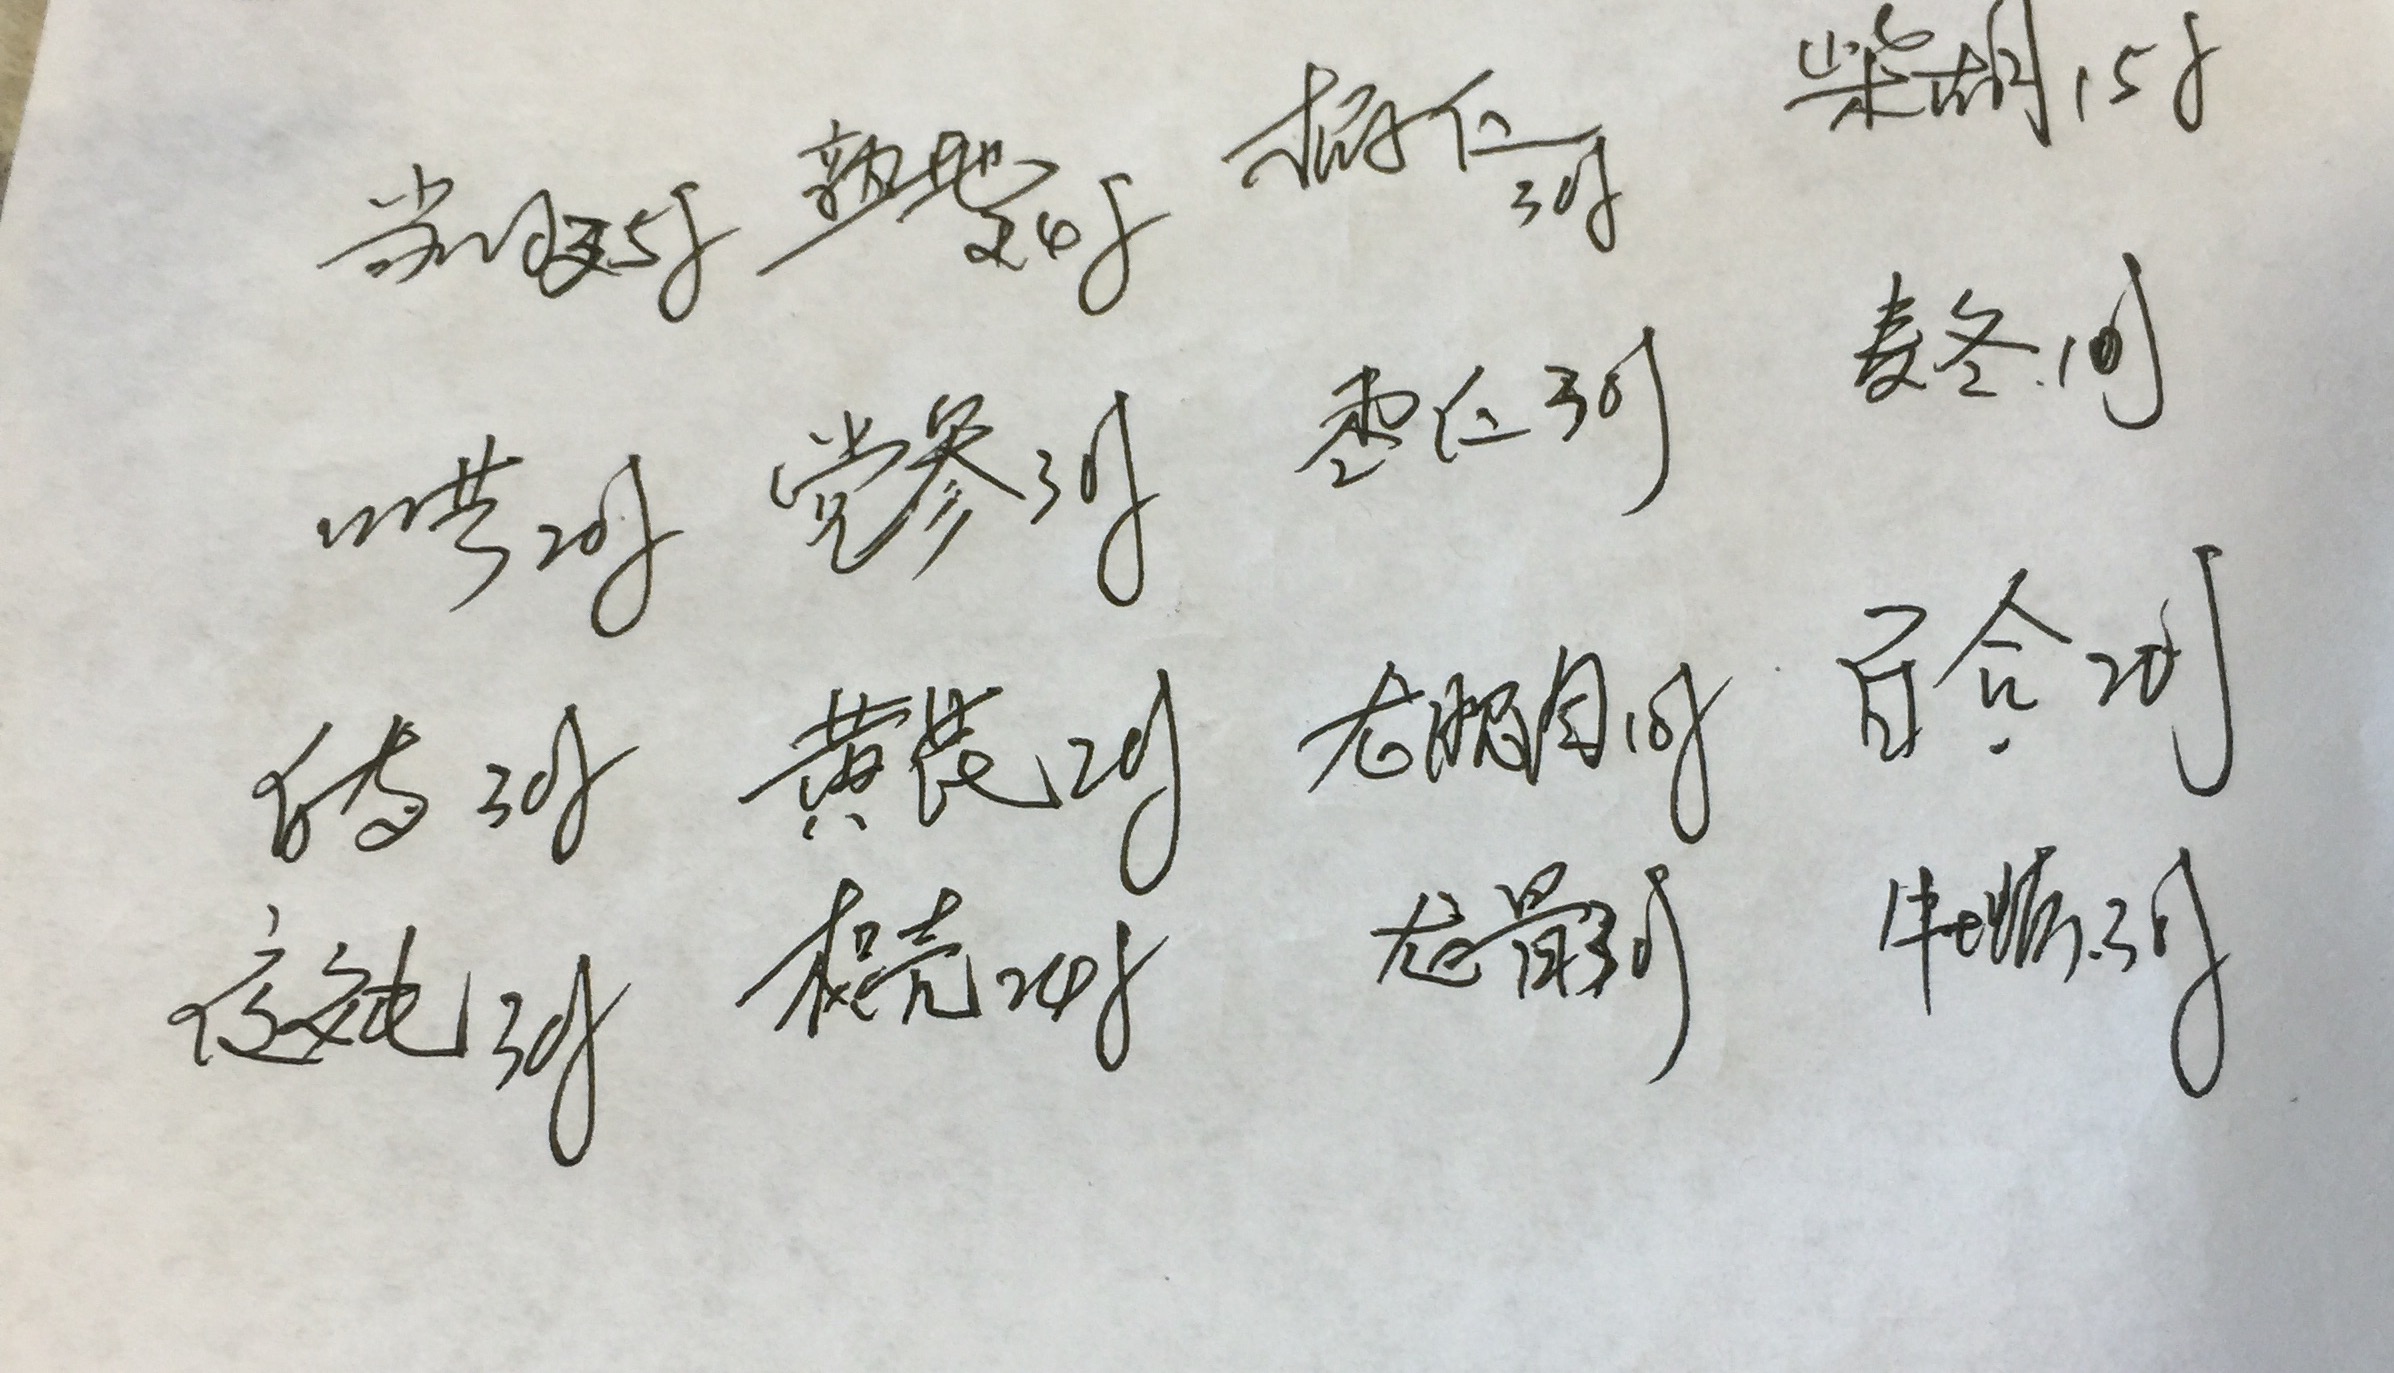 当归25g 熟地24g 柏仁30g 柴胡15g
川芎20g 党参30g 枣仁30g 麦冬10g
30g 黄芪20g 龙眼肉10g 百合20g
夜交 30g 枳壳24g 龙骨30g 牡蛎30g